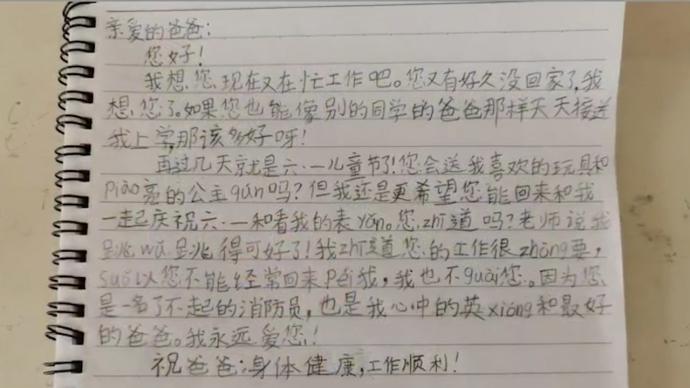 亲爱的爸爸:
您好!
我想您现在又在忙工作吧。您又有好久没回家了,我
想您了。如果您也能像别的同学的爸爸那样天天接送
我上学,那该多好呀!
再过几天就是六·一儿童节了!您会送我喜欢的玩具和
piào亮的公主qún吗?但我还是更希望您能回来和我
一起庆祝六·一和看我的表yǎn。您zhī道吗?老师说我
跳wǔ跳得可好了!我zhī道您的工作很zhòng要,
suǒ以您不能经常回来péi我,我也不guài您。因为您
是一名了不起的消防员,也是我心中的英xióng和最好
的爸爸。我永远爱您!
祝爸爸:身体健康,工作顺利!